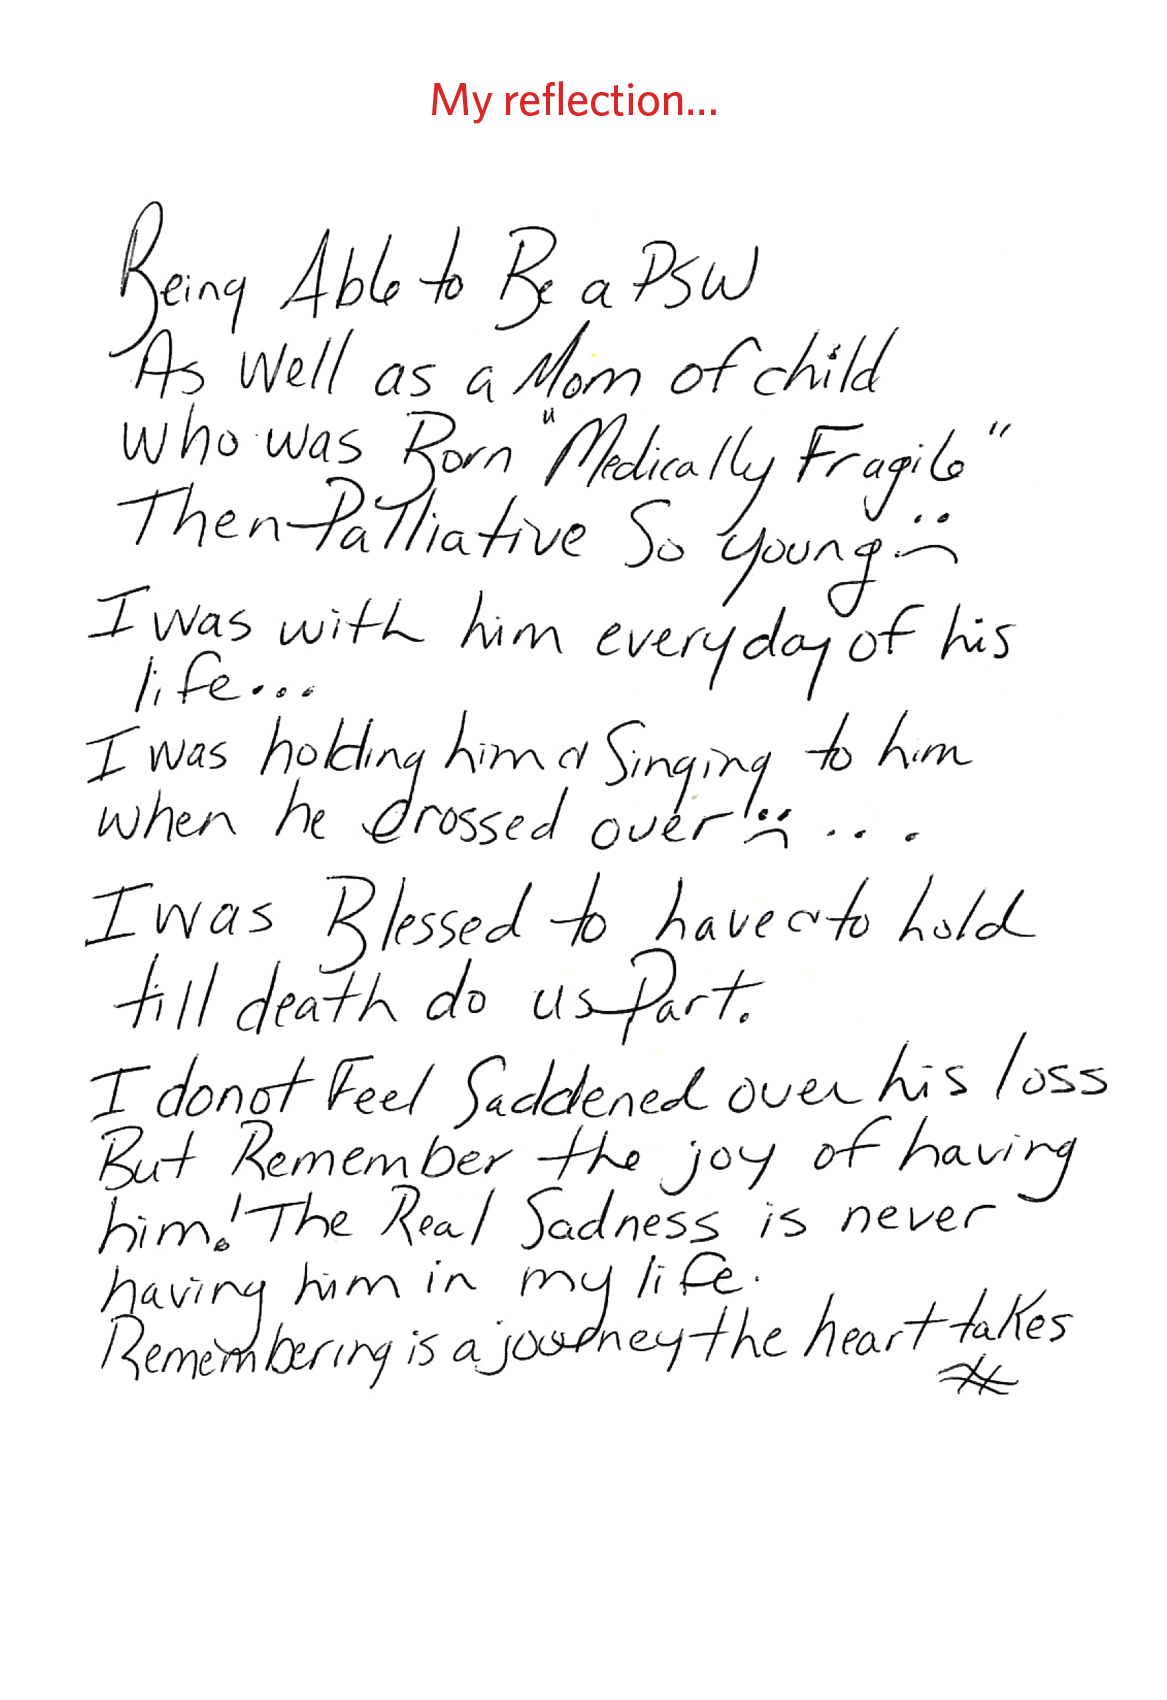 My reflection...
Being Able to Be a PSW
As Well as a Mom of child
who was Born "Medically Fragile"
Then Palliative So young :(
I was with him everyday of his
life...
I was holding him & Singing to him
when he crossed over! :( ...
I was Blessed to have & to hold
till death do us Part.
I do not Feel Saddened over his loss
But Remember the joy of having
him! The Real Sadness is never
having him in my life.
Remembering is a journey the heart takes